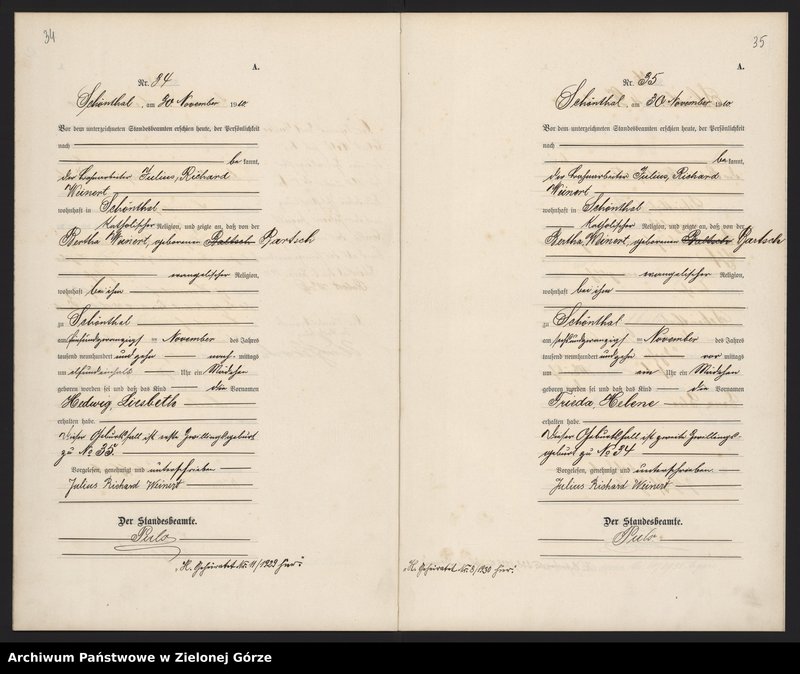 34
A.
Nr. 34
Schönthal, am 30 November 1910
Vor dem unterzeichneten Standesbeamten erschien heute, der Persönlichkeit
nach
be kannt,
der Julius, Richard
Weinert
wohnhaft in Schönthal
katholischer Religion, und zeigte an, daß von der
Bertha Weinert, geborenen Bartsch
evangelischer Religion,
wohnhaft bei ihm
zu Schönthal
am fünfundzwanzigs = November des Jahres
tausend neunhundert und zehn nach mittags
um elfundeinhalb Uhr ein Mädchen
geboren worden sei und daß das Kind die Vornamen
Hedwig, Liesbeth
erhalten habe.
Dieser Geburtsfall ist erste Zwillingsgeburt
zu No 35.
Vorgelesen, genehmigt und unterschrieben
Julius Richard Weinert
Der Standesbeamte.
"K. Geheiratet Nr. 11/1929 hier."
35
A.
Nr. 35
Schönthal, am 30 November 1910
Vor dem unterzeichneten Standesbeamten erschien heute, der Persönlichkeit
nach
be kannt,
der Julius, Richard
Weinert
wohnhaft in Schönthal
katholischer Religion, und zeigte an, daß von der
Bertha, Weinert, geborenen Bartsch
evangelischer Religion,
wohnhaft bei ihm
zu Schönthal
am sechsundzwanzigs = November des Jahres
tausend neunhundert und zehn vor mittags
um ein Uhr ein Mädchen
geboren worden sei und daß das Kind die Vornamen
Frieda, Helene
erhalten habe.
Dieser Geburtsfall ist zweite Zwillings-
geburt zu No 34
Vorgelesen, genehmigt und unterschrieben
Julius Richard Weinert
Der Standesbeamte.
"K. Geheiratet Nr. 3/1930 hier."
Archiwum Państwowe w Zielonej Górze